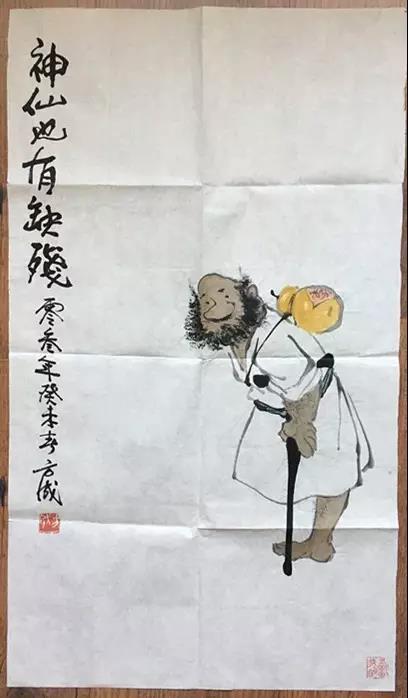 神仙也有缺残
零叁年癸未春方成